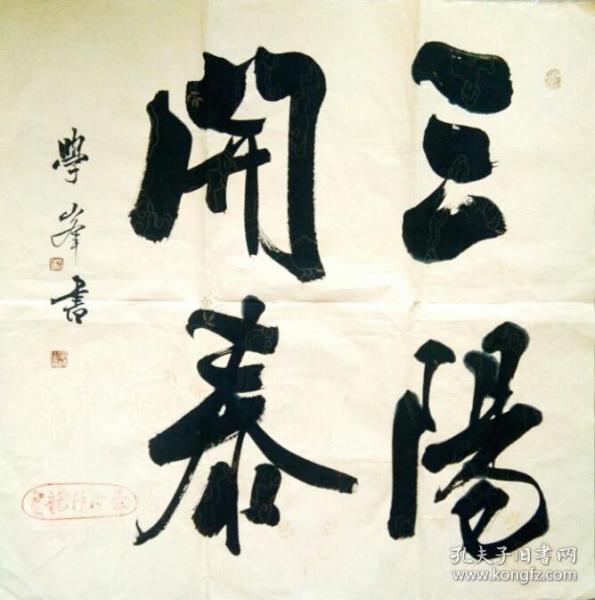 三陽
開泰
學峯書
孔夫子旧书网
www.kongfz.com